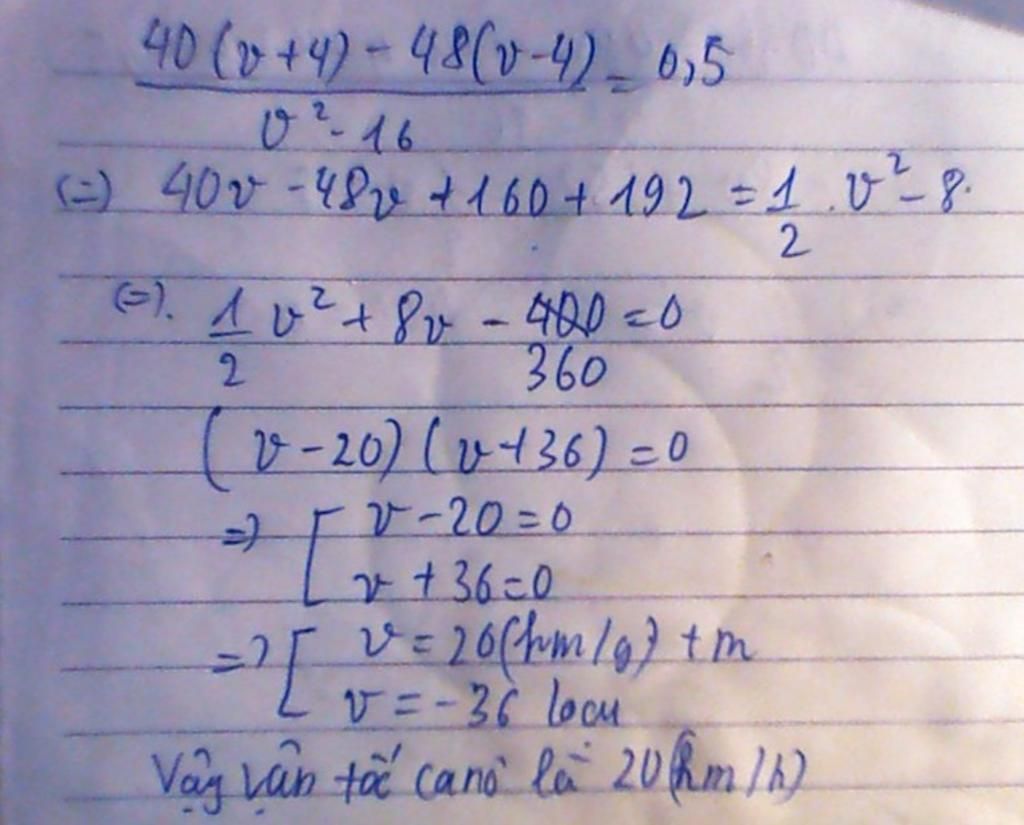 40(v+4) - 48(v-4) = 0,5
v² - 16
(=) 40v - 48v + 160 + 192 = 1/2 . v² - 8.
(=). 1/2 v² + 8v - 400 = 0
360
(v - 20)(v + 36) = 0
=) [ v - 20 = 0
v + 36 = 0
=) [ v = 20(km/g) + m
v = -36 loại
Vậy vận tốc canô là 20(km/h)